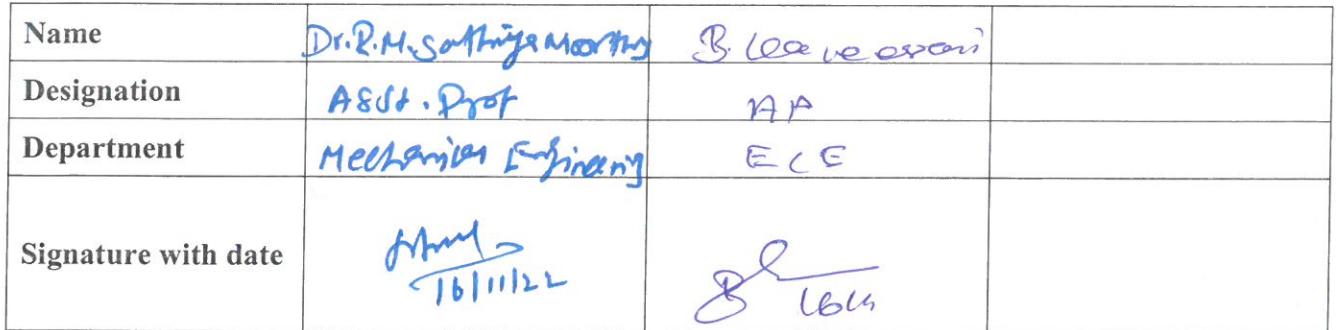 Name Dr.R.M.Sathiya Moorthy B.
Designation Asst. Prof AP
Department Mechanical Engineering ECE
Signature with date 16/11/22